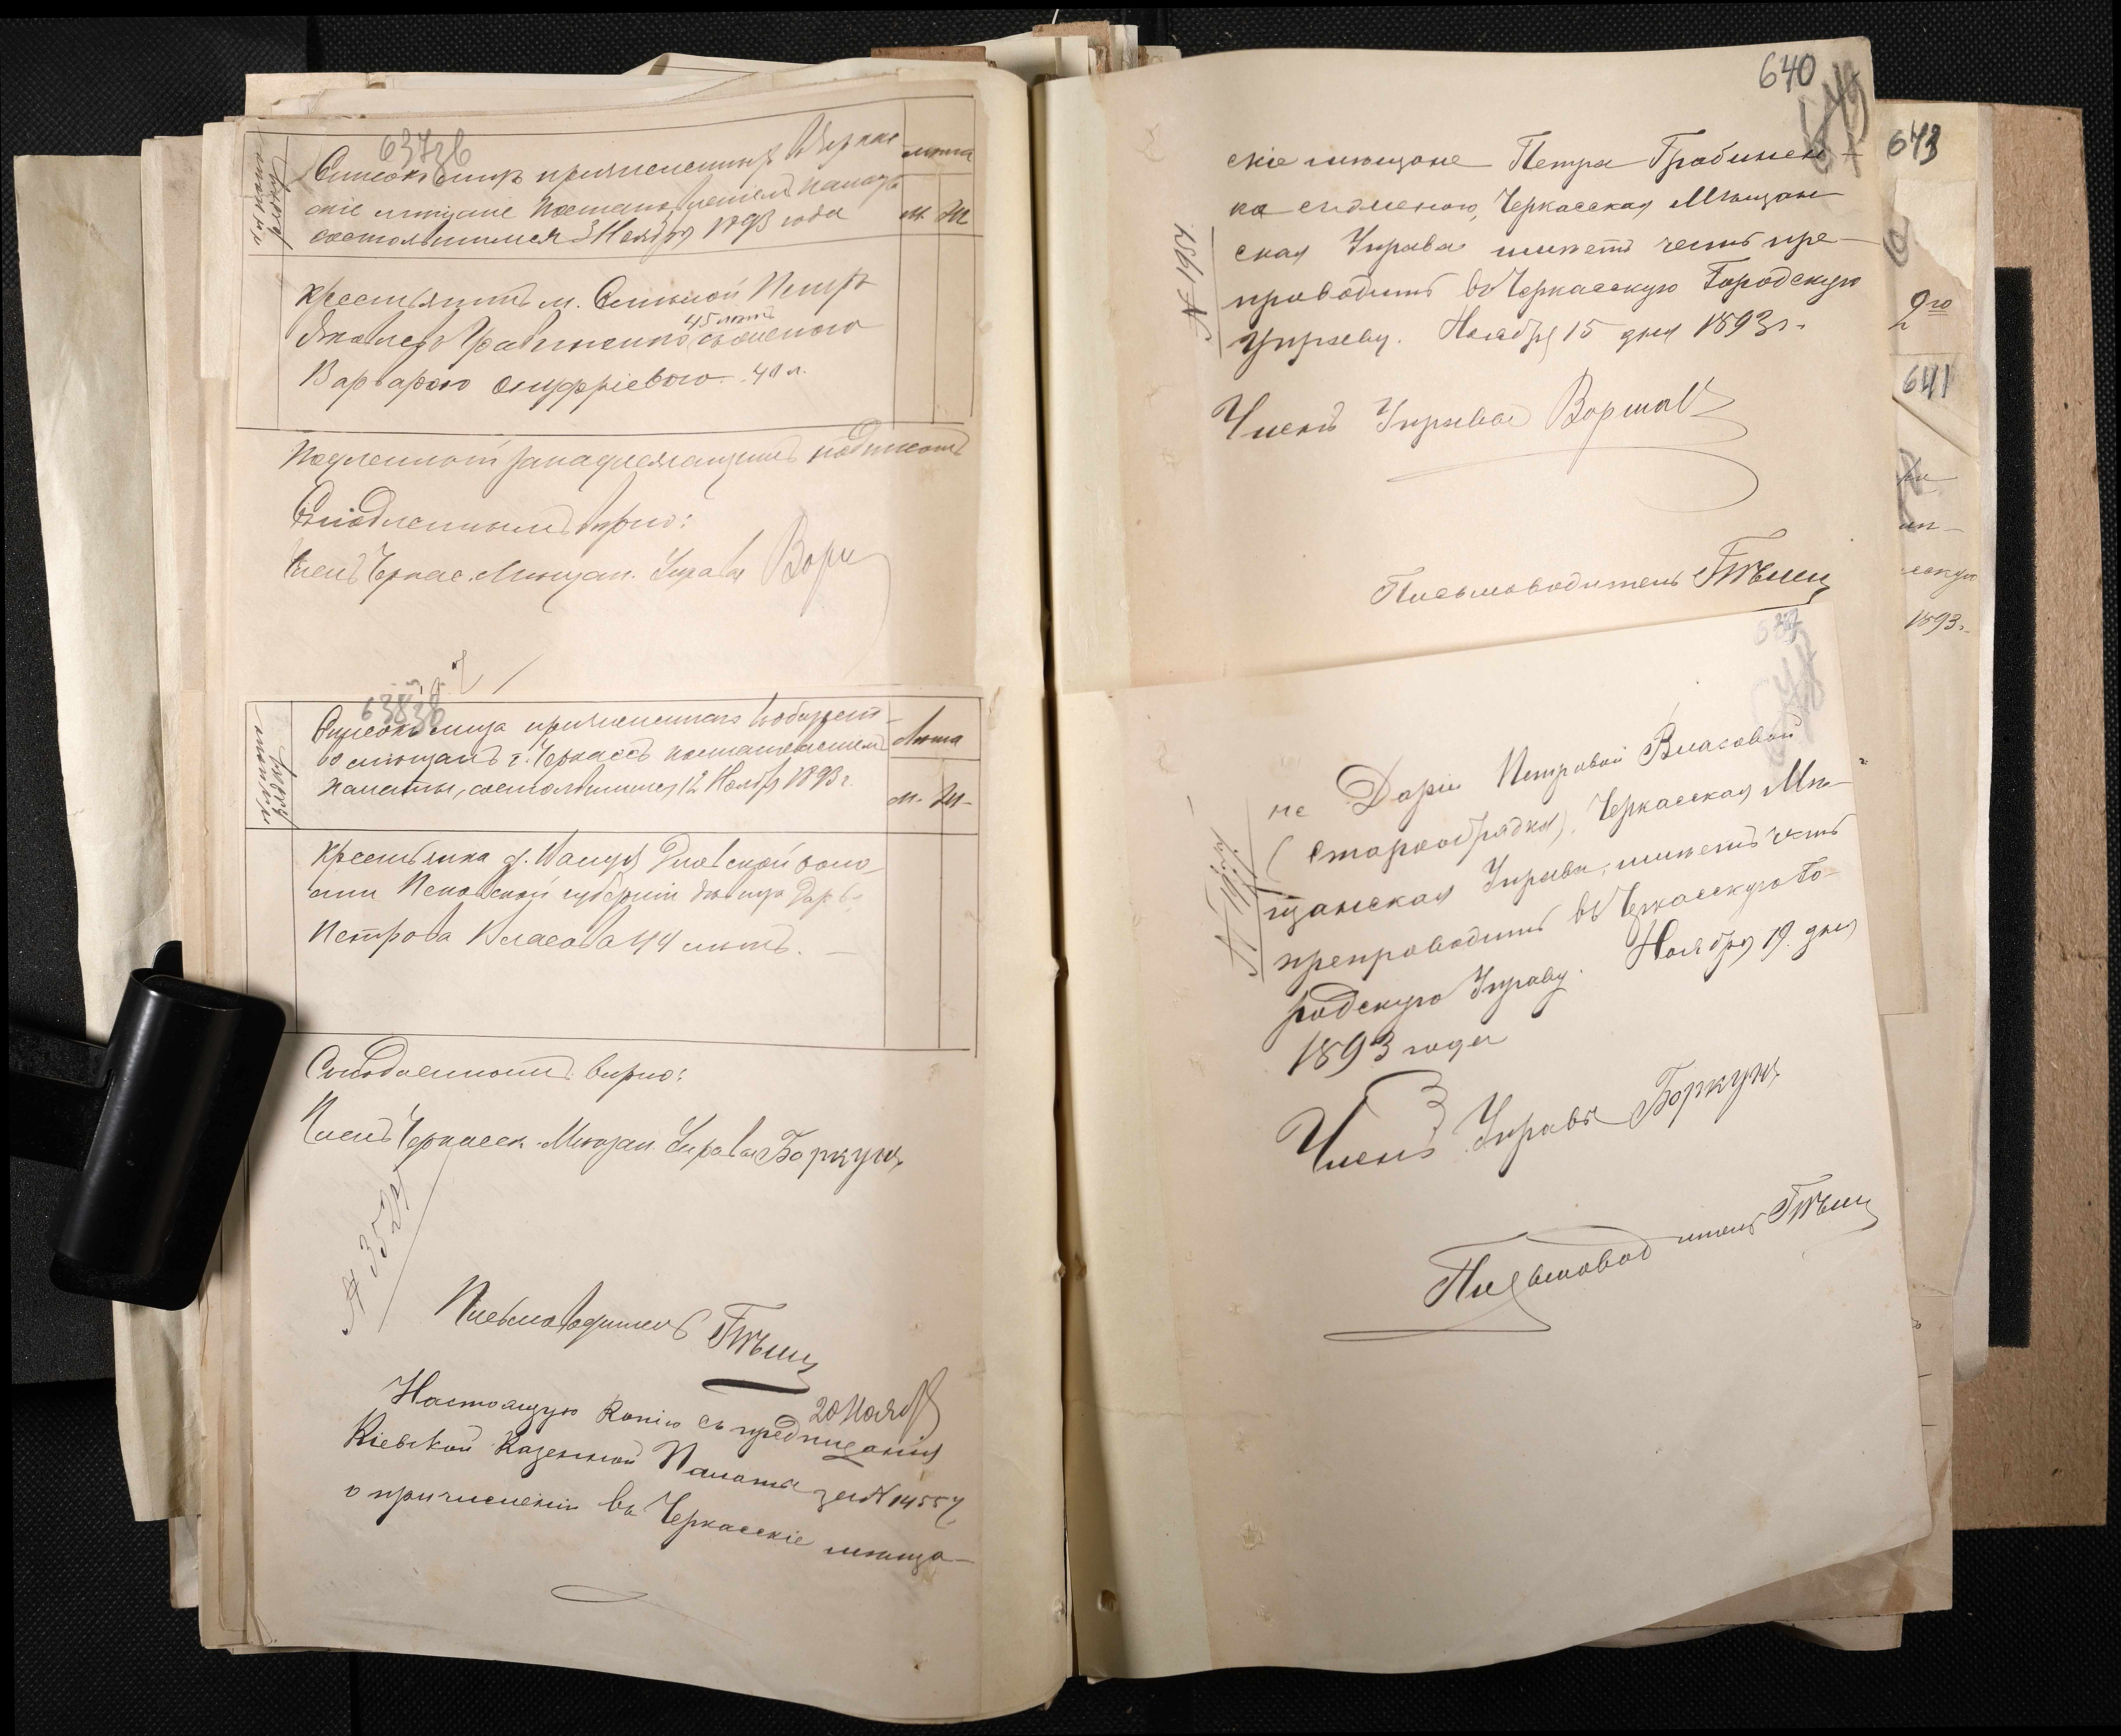 637зв
Списокъ лицъ причисленныхъ въ Черкас
скіе мѣщане Постановленіемъ Палаты
состоявшимся 3 Ноября 1893 года
лѣта
м. ж
Крестьянинъ м. Смѣлой Петръ
45 лѣтъ
Яковлевъ Грабиненко съ женою
Варварою Онуфріевою 40 л.
Подлинный за надлежащимъ подписомъ
Съ подлиннымъ вѣрно:
Членъ Черкас. Мѣщан. Управы
638зв
Списокъ лица причисленнаго
мѣщанъ г. Черкассъ постановленіемъ
Палаты, состоявшимся 12 Ноября 1893 г.
Лѣта
м. ж.
Крестьянка д. воло
сти Псковской губерніи дѣвица Дарья
Петрова Власова 44 лѣтъ.
Съ подлиннымъ вѣрно:
Членъ Черкасск. Мѣщан. Управы Боркунъ
Письмоводитель
20 Ноября
Настоящую Копію съ предписанія
Кіевской Казенной Палаты за № 14557
о причисленіи въ Черкасскіе мѣща-
640
скіе мѣщане Петра Грабинен-
ка съ женою, Черкасская Мѣщан
ская Управа имѣетъ честь пре-
проводить въ Черкасскую Городскую
Управу. Ноября 15 дня 1893 г.
Членъ Управы
Письмоводитель
не Даріи Петровой Власовой
(старообрядка), Черкасская Мѣ-
щанская Управа, имѣетъ честь
препроводить въ Черкасскую Го-
родскую Управу. Ноября 19 дня
1893 года
Членъ Управы Боркунъ
Письмоводитель
643
2го
641
1893 г.